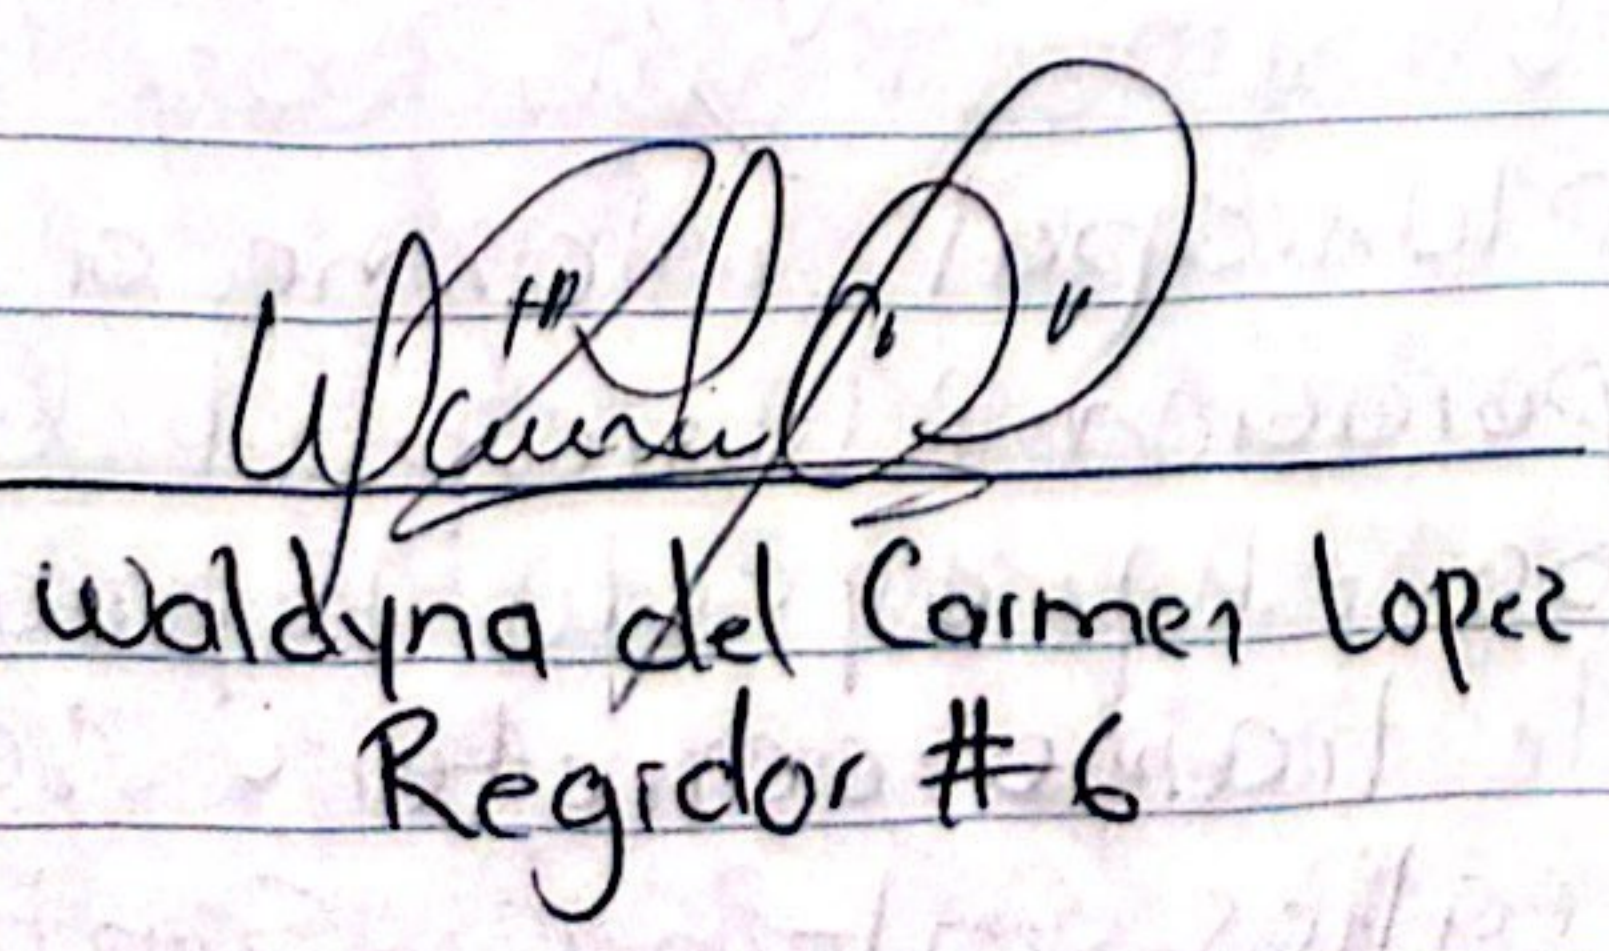 Waldyna del Carmen Lopez
Regidor # 6